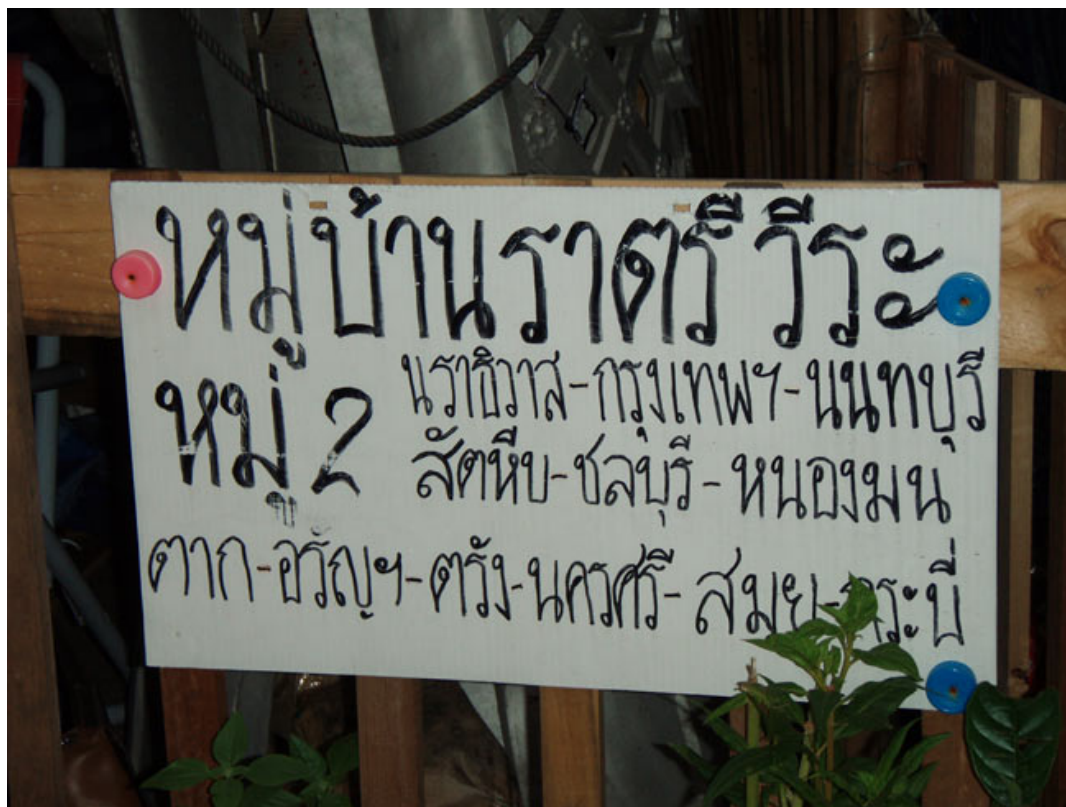 หมู่บ้านราตรี วีระ
หมู่ 2 นราธิวาส-กรุงเทพฯ-นนทบุรี
สัตหีบ-ชลบุรี-หนองมน
ตาก-อรัญฯ-ตรัง-นครศรี-สมุย-กระบี่